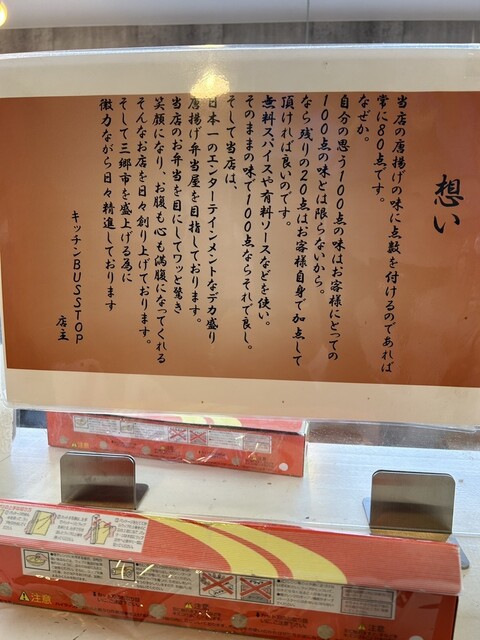 想い
当店の唐揚げの味に点数を付けるのであれば
常に80点です。
なぜか。
自分の思う100点の味はお客様にとっての
100点の味とは限らないから。
なら残りの20点はお客様自身で加点して
頂ければ良いのです。
無料スパイスや有料ソースなどを使い。
そのままの味で100点ならそれで良し。
そして当店は、
日本一のエンターテインメントなデカ盛り
唐揚げ弁当屋を目指しております。
当店のお弁当を目にしてワッと驚き
笑顔になり、お腹も心も満腹になってくれる
そんなお店を日々創り上げております。
そして三郷市を盛上げる為に
微力ながら日々精進しております
キッチンBUSSTOP
店主
注意
注意
注意
注意